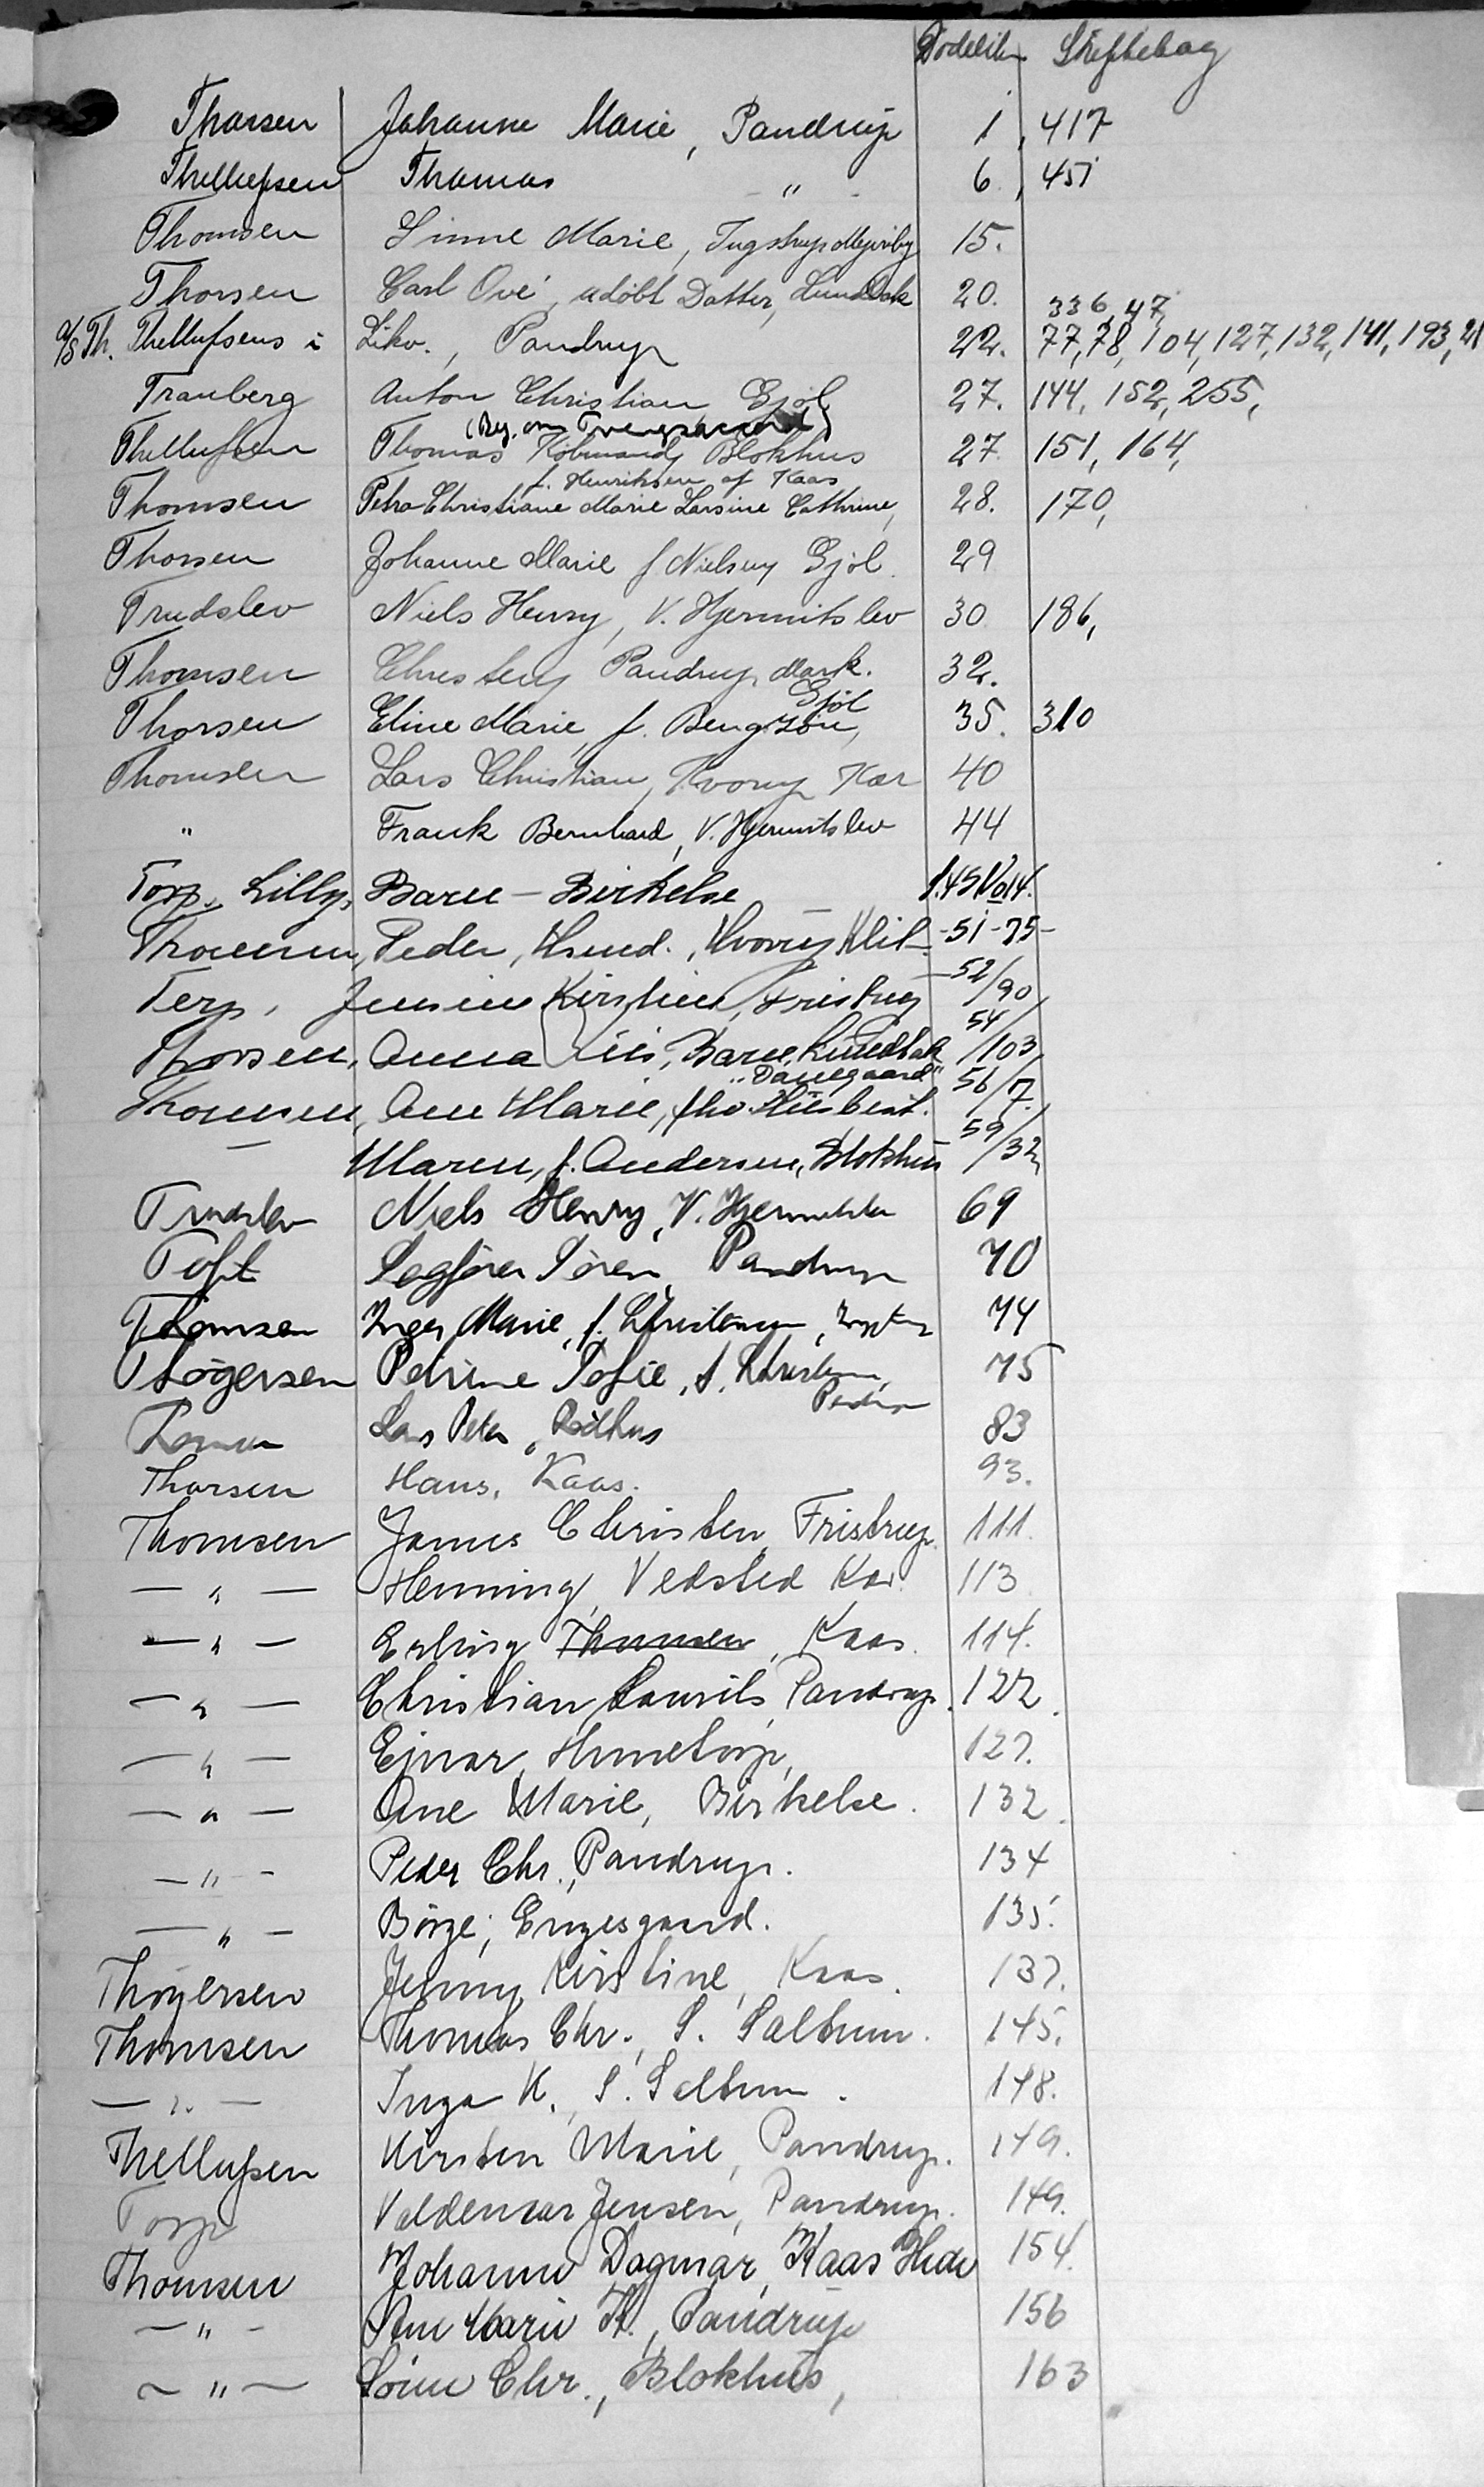 Dødeliste Skiftebog
Thorsen Johanne Marie, Pandrup 1 417
Thellufsen Thomas " 6 451
Thomsen Sinne Marie, Ingstrup Mejeriby 15.
Thorsen Carl Ove, udöbt Datter, Lundbak 20.
336, 47,
A/S Th. Thellufsens i Likv., Pandrup 22. 77, 78, 104, 127, 132, 141, 193, 21
Tranberg Anton Christian Gjöl 27. 144, 152, 255,
(Beg. om Tvangsakkord)
Thellufsen Thomas Köbmand, Blokhus 27. 151, 164,
f. Henriksen af Kaas
Thomsen Petra Christiane Marie Larsine Cathrine, 28. 170,
Thorsen Johanne Marie f Nielsen, Gjöl. 29
Trudslev Niels Henry, V. Hjermitslev 30 186,
Thomsen Christen, Pandrup Mark. 32.
Gjöl
Thorsen Eline Marie, f. Bengtson, 35. 310
Thomsen Lars Christian, Hvorup Kær 40
" Frank Bernhard, V. Hjermitslev 44
Torp, Lilly, Barn - Birkelse 1.45 14.
Thomsen, Peder, Hsmd., Hvorup Klit - -51-75-
Terp, Jensine Kirstine, Fristrup 52/90
Thorsen, Anna Liis, Barn, Lundbak 54/103
"Danegaard"
Thomsen, Ane Marie, fhv. Husbest. 56/7.
— Maren, f. Andersen, Blokhus 59/32
Trudslev Niels Henry, V. Hjermitslev 69
Toft Sagfører Søren, Pandrup 70
Thomsen Inger Marie, f. Christensen, 74
Thøgersen Petrine Sofie, f. Christensen, 75
Pandrup
Thomsen Lars Peter, Rødhus 83
Thorsen Hans, Kaas. 93.
Thomsen James Christen, Fristrup. 111.
— " — Henning, Vedsted Kær. 113
— " — Erling Thomsen, Kaas. 114.
— " — Christian Laurits, Pandrup. 122.
— " — Ejnar, Hunetorp, 127.
— " — Ane Marie, Birkelse. 132.
— " — Peder Chr., Pandrup. 134
— " — Börge, Engesgaard. 135.
Thøgersen Jenny Kirstine, Kaas. 137.
Thomsen Thomas Chr., S. Saltum. 145.
— " — Inga K., S. Saltum. 148.
Thellufsen Kirsten Marie, Pandrup. 149.
Torp Valdemar Jensen, Pandrup. 149.
Thomsen Johanne Dagmar, Kaas Hede 154.
— " — Ane Marie K., Pandrup 156
— " — Sörine Chr., Blokhus, 163